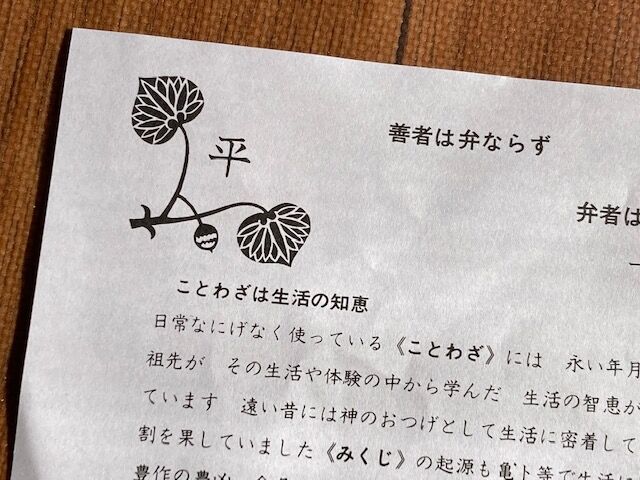 平
善者は弁ならず
弁者は
ことわざは生活の知恵
日常なにげなく使っている《ことわざ》には 永い年月
祖先が その生活や体験の中から学んだ 生活の智恵が
ています 遠い昔には神のおつげとして生活に密着して
割を果していました《みくじ》の起源も亀卜等で生活に
豊作の豊凶